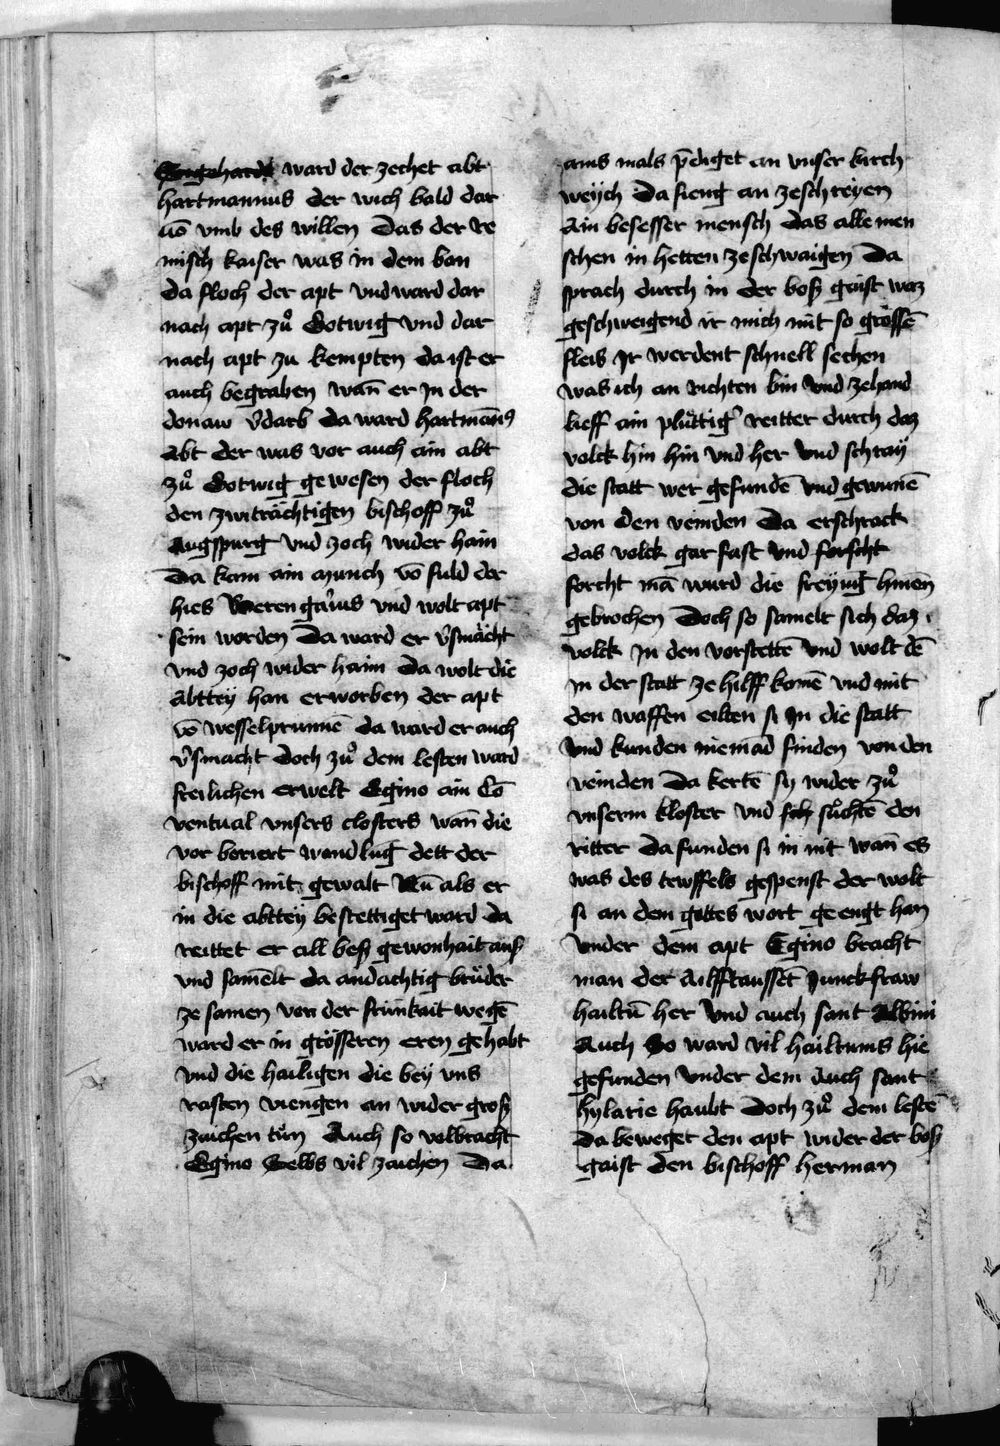 ward der zechet abt
hartmannus der wich bald dar
uō vmb des willen Das der re
misch kaiser was in dem ban
da floch der apt vnd ward dar
nach apt zů Gotwig vnd dar
nach apt zu kempten da ist er
auch begraben wan̄ er In der
donaw v̓darb da ward hartman̄ꝰ
Abt der was vor auch ain abt
zů Gotwig gewesen der floch
den zwiträchtigen bischoff zů
Augspurg vnd zoch wider hain
Da kam ain munch vō fuld der
hies vnd wolt apt
sein worden Da ward er v̓smächt
vnd zoch wider haim Da wolt die
Abttey han erworben der apt
vō wesselprunnē da ward er auch
v̓smacht doch zů dem lesten ward
freilichen erwelt Egino ain Cō
ventual vnsers closters wan̄ die
vor dett der
bischoff mit gewalt Nū als er
in die abttey bestettiget ward da
reittet er all beß gewonhait auß
vnd samēlt da andachtig brüder
ze samen von der frūnkait wegē
ward er in grösseren eren gehabt
vnd die hailigen die bey vns
rasten viengen an wider groß
zaichen tůn Auch so volbracht
Egino Selbs vil zaichen Da
ains mals p̄diget an vnser kirch
weÿch Da fieng an zeschreyen
Ain besesser mensch das alle men
schen in hetten zeschwaigen Da
sprach durch in der boß gaist waz
geschweigend ir mich mit so grossē
fleis Ir werdent schnell sechen
was ich an richten bin vnd zehand
lieff ain plůttig̓ reitter durch daz
volck hin hin vnd her vnd schray
die statt wer gefundē vnd gewunē
von den veinden Da erschrack
das volck gar fast vnd forscht
forcht mā wurd die freyung hinen̄
gebrochen Doch so samelt sich daz
volck In den vorstettē vnd wolt dē
in der statt ze hilff komē vnd mit
den waffen eilten si In die statt
vnd kunden niemād finden von den
veinden Da kertē sy wider zů
vnserm kloster vnd sůchtē den
ritter Da funden si in nit wan̄ es
was des tewffels gespenst der wolt
si an dem gottes wort geengt han
vnder dem apt Egino bracht
man der Ailfftaussēt Junckfraw
hailtū her vnd auch sant Albini
Auch So ward vil hailtums hie
gefunden vnder dem Auch sant
hylarie haubt Doch zů dem lestē
Da beweget den apt wider der boß
gaist den bischoff herman